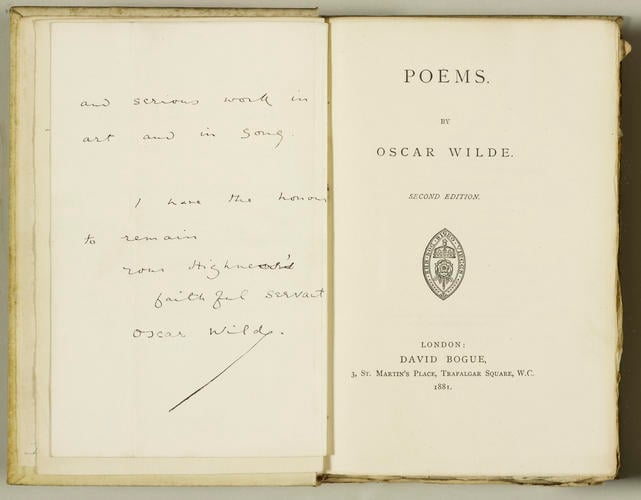 and serious work in
art and in song.
I have the honour
to remain
your Highness's
faithful servant
Oscar Wilde.
POEMS.
BY
OSCAR WILDE.
SECOND EDITION.
LONDON:
DAVID BOGUE,
3, ST. MARTIN'S PLACE, TRAFALGAR SQUARE, W.C.
1881.